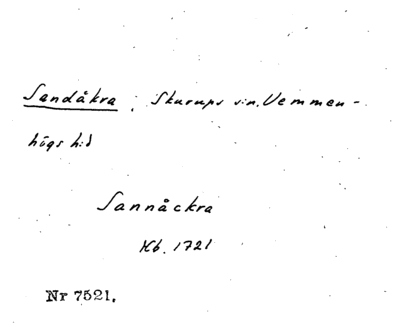 Sandåkra, Skurups sn. Vemmen-
högs hd
Sannåckra
Kb. 1721
Nr 7521.